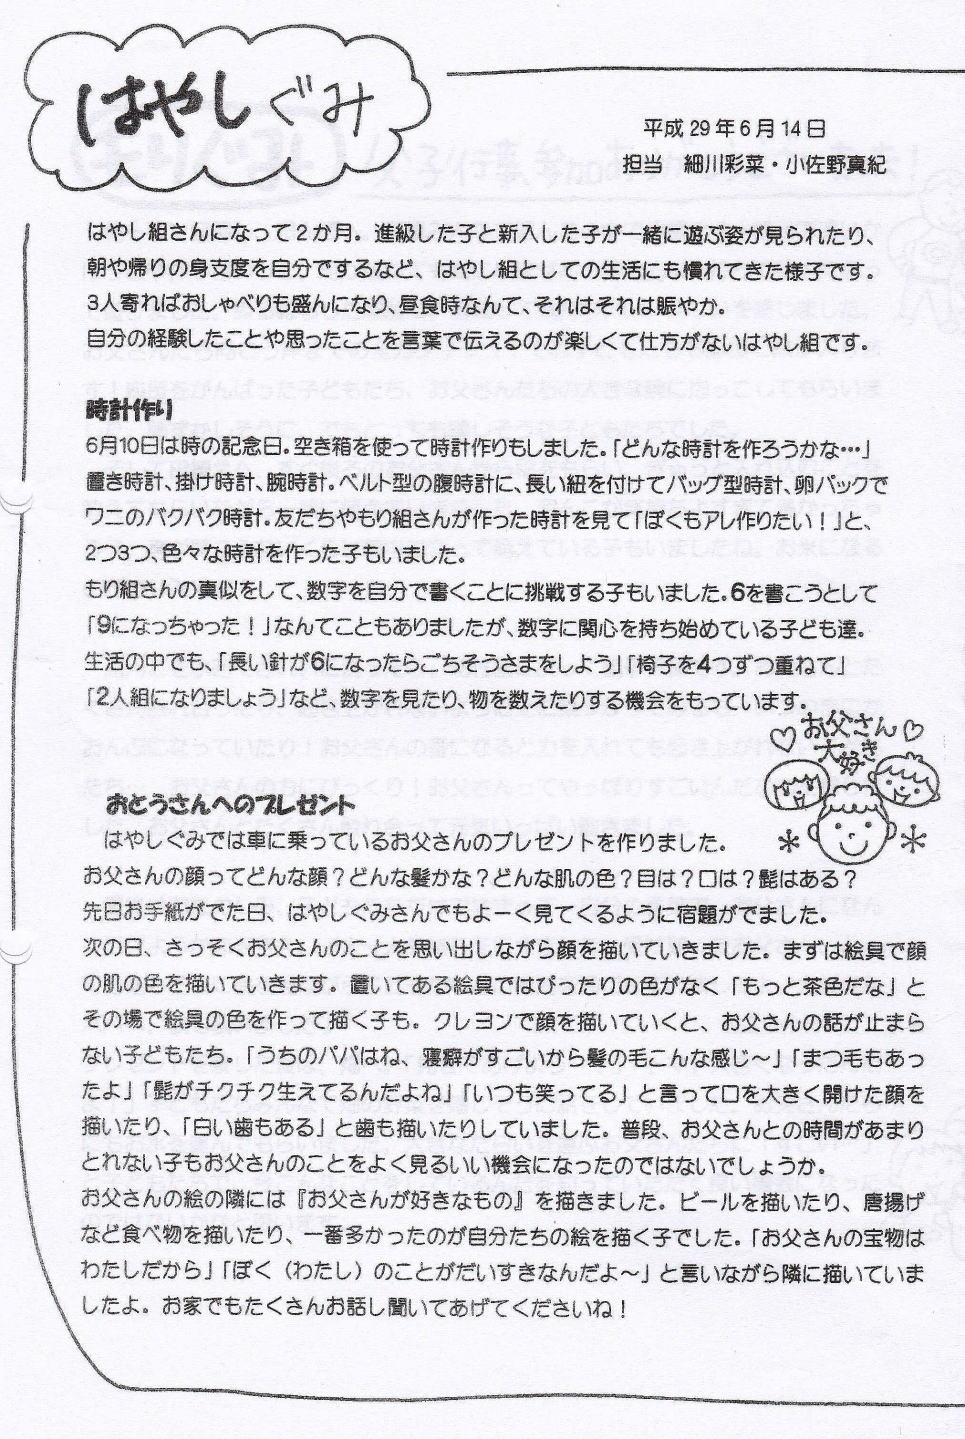 はやしぐみ
平成29年6月14日
担当　細川彩菜・小佐野真紀
はやし組さんになって２か月。進級した子と新入した子が一緒に遊ぶ姿が見られたり、
朝や帰りの身支度を自分でするなど、はやし組としての生活にも慣れてきた様子です。
3人寄ればおしゃべりも盛んになり、昼食時なんて、それはそれは賑やか。
自分の経験したことや思ったことを言葉で伝えるのが楽しくて仕方がないはやし組です。
時計作り
6月10日は時の記念日。空き箱を使って時計作りもしました。「どんな時計を作ろうかな…」
置き時計、掛け時計、腕時計。ベルト型の腹時計に、長い紐を付けてバッグ型時計、卵パックで
ワニのパクパク時計。友だちやもり組さんが作った時計を見て「ぼくもアレ作りたい！」と、
2つ3つ、色々な時計を作った子もいました。
もり組さんの真似をして、数字を自分で書くことに挑戦する子もいました。6を書こうとして
「9になっちゃった！」なんてこともありましたが、数字に関心を持ち始めている子ども達。
生活の中でも、「長い針が6になったらごちそうさまをしよう」「椅子を4つずつ重ねて」
「2人組になりましょう」など、数字を見たり、物を数えたりする機会をもっています。
♡お父さん♡
大好き
おとうさんへのプレゼント
はやしぐみでは車に乗っているお父さんのプレゼントを作りました。
お父さんの顔ってどんな顔？どんな髪かな？どんな肌の色？目は？口は？髭はある？
先日お手紙がでた日、はやしぐみさんでもよーく見てくるように宿題がでました。
次の日、さっそくお父さんのことを思い出しながら顔を描いていきました。まずは絵具で顔
の肌の色を描いていきます。置いてある絵具ではぴったりの色がなく「もっと茶色だな」と
その場で絵具の色を作って描く子も。クレヨンで顔を描いていくと、お父さんの話が止まら
ない子どもたち。「うちのパパはね、寝癖がすごいから髪の毛こんな感じ～」「まつ毛もあっ
たよ」「髭がチクチク生えてるんだよね」「いつも笑ってる」と言って口を大きく開けた顔を
描いたり、「白い歯もある」と歯も描いたりしていました。普段、お父さんとの時間があまり
とれない子もお父さんのことをよく見るいい機会になったのではないでしょうか。
お父さんの絵の隣には『お父さんが好きなもの』を描きました。ビールを描いたり、唐揚げ
など食べ物を描いたり、一番多かったのが自分たちの絵を描く子でした。「お父さんの宝物は
わたしだから」「ぼく（わたし）のことがだいすきなんだよ～」と言いながら隣に描いていま
したよ。お家でもたくさんお話し聞いてあげてくださいね！